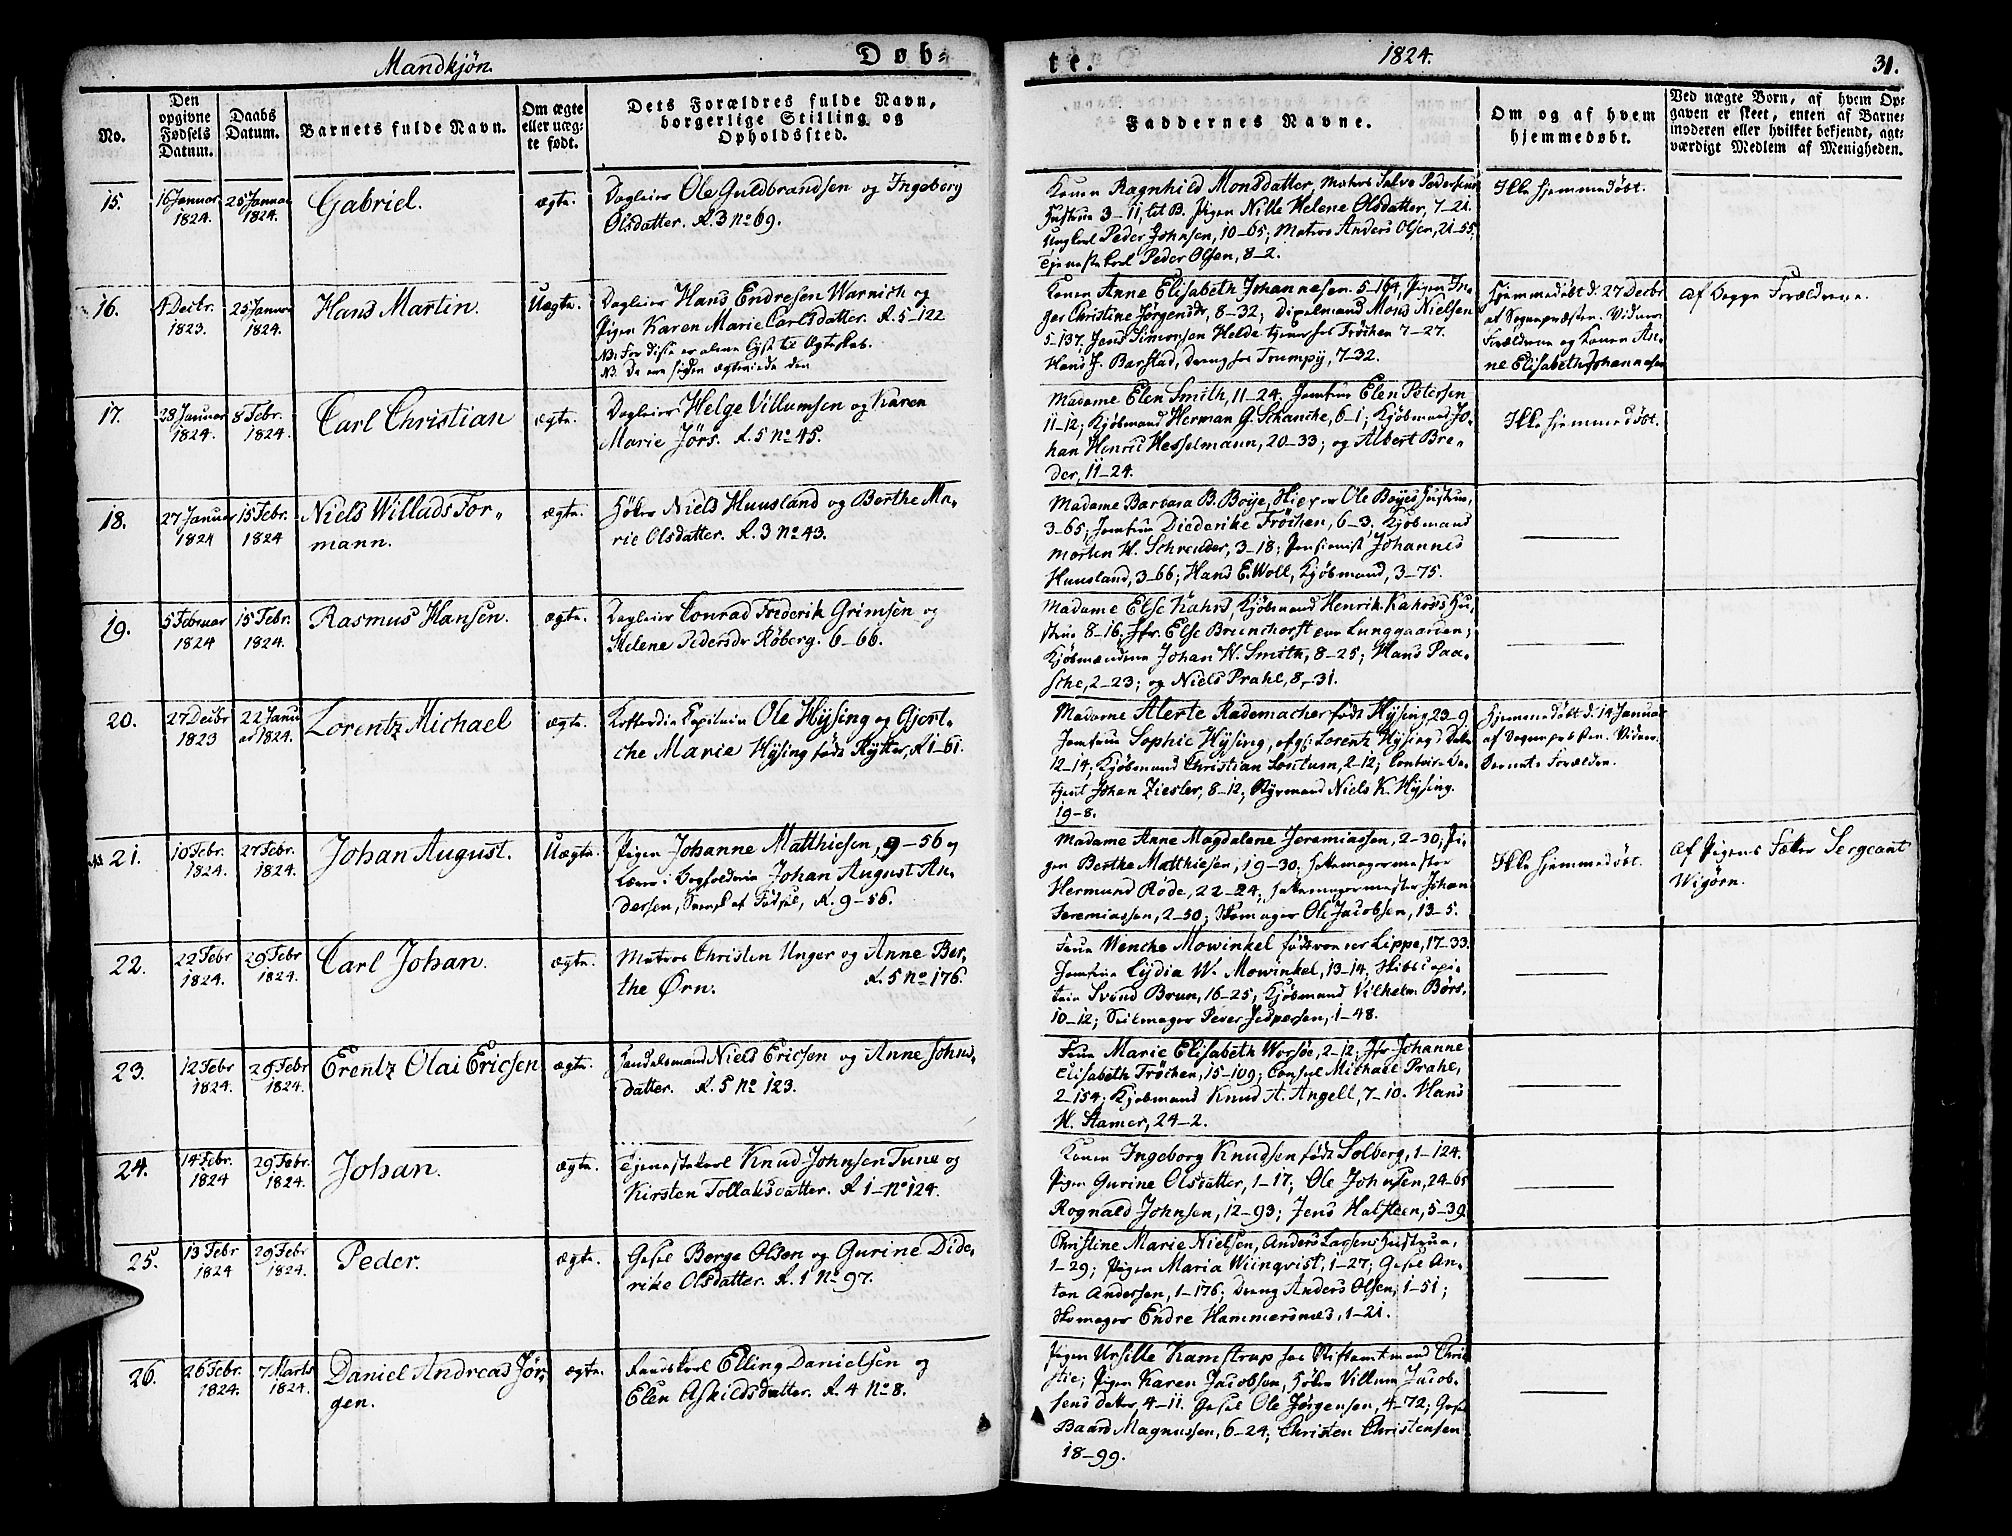 Mandkjøn.
Døb-
te.
1824.
31.
No.
Den
opgivne
Fødsels
Datum.
Daabs
Datum.
Barnets fulde Navn.
Om ægte
eller uæg-
te født.
Dets Forældres fulde Navn,
borgerlige Stilling og
Opholdssted.
Faddernes Navne.
Om og af hvem
hjemmedøbt.
Ved uægte Børn, af hvem Op-
gaven er skeet, enten af Barne-
moderen eller hvilket bekjendt, agt-
værdigt Medlem af Menigheden.
15.
16 Januar
1824.
25 Janua
1824.
Gabriel.
ægte.
Dagleier Ole Guldbrandsen og Ingeborg
Olsdatter. R. 3 No 69.
Konen Ragnhild Monsdatter, Matros Salve Pedersens
Hustrue 3-11, lit B. Pigen Nille Helene Olsdatter, 7-21.
Ungkarl Peder Johnsen, 10-65; Matros Anders Olsen, 21-55,
Tjenestekarl Peder Olsen, 8-2.
Ikke hjemmedøbt.
16.
4 Decbr.
1823.
25 Janua
1824.
Hans Martin.
Uægte.
Dagleier Hans Endresen Warnich og
Pigen Karen Marie Carlsdatter. R. 5-122
NB. For disse er alene lyst til Ægteskab.
NB. De ere siden ægteviede
Konen Anne Elisabeth Johannesen 5-164, Pigen In-
ger Christine Jørgensdr, 8-32; Mons Nielsen
5-137; Jens Simonsen Helde tjener hos Frøchen 7-27.
Hans J. Barstad, Dreng hos Trumpy, 7-32.
Hjemmedøbt d. 27 Decbr
af Sognepræsten. Vidner:
Forældrene og Konen An-
ne Elisabeth Johannesen
af begge Forældrene.
17.
28 Januar
1824.
8 Febr.
1824.
Carl Christian
ægte.
Dagleier Helge Villumsen og Karen
Marie Jørs. R. 5 No 45.
Madame Elen Smith, 11-24. Jomfrue Elen Petersen
11-12; Kjøbmand Herman G. Schancke, 6-1; Kjøbmand Jo-
han Henric Hesselmann, 20-33; og Albert Bre-
der, 11-24.
Ikke hjemmedøbt.
18.
27 Januar
1824
15 Febr.
1824
Niels Willads For-
mann.
ægte.
Høker Niels Huusland og Berthe Ma-
rie Olsdatter. R. 3 No 43.
Madame Barbara B. Boye, Skipper Ole Boyes Hustrue,
3-65; Jomfrue Diederike Frøchen, 6-3, Kjøbmand
Morten W. Schreuder, 3-18; Pensionist Johannes
Huusland, 3-66; Hans E. Woll, Kjøbmand, 3-75.
19.
5 Februar
1824
15 Febr.
1824.
Rasmus Hansen.
ægte.
Dagleier Conrad Frederik Grimsen og
Helene Pedersdr Røberg. 6-66.
Madame Else Kahrs, Kjøbmand Henrik Kahrs's Hu-
strue 8-16; Jfr. Else Brunchorst paa Lunggaarden;
Kjøbmændene Johan W. Smith, 8-25; Hans Paa-
sche, 2-23; og Niels Prahl, 8-31.
20.
27 Decbr
1823
22 Janu
ar 1824.
Lorentz Michael
ægte.
Kofferdie Capitain Ole Hysing og Gjert-
che Marie Hysing født Rytter, R. 1-61.
Madame Alerte Rademacher født Hysing, 23-9.
Jomfrue Sophie Hysing, afg. Lorentz Hysings Datter
12-14; Kjøbmand Christian Sontum, 2-12; Contoir Be-
tjent Johan Ziesler, 8-12; Styrmand Niels K. Hysing.
19-8.
Hjemmedøbt d. 14 Januar
af Sognepræsten. Vidner:
Barnets Forældre.
21.
10 Febr.
1824.
27 Febr.
1824.
Johan August.
Uægte.
Pigen Johanne Matthiesen, 9-56 og
Johan August An-
dersen, Svensk af Fødsel, R. 9-56.
Madame Anne Magdalene Jeremiassen, 2-30; Pi-
gen Berthe Matthiesen, 19-30;
Hermund Røde, 22-24, Johan
Jeremiassen, 2-50; Skomager Ole Jacobsen, 13-5.
Ikke hjemmedøbt.
Af Pigens Fader Sergeant
Wigørn.
22.
22 Febr
1824.
29 Febr
1824.
Carl Johan.
ægte.
Matros Christen Unger og Anne Ber-
the Ørn. R. 5 No 176.
Frue Wenche Mowinkel født von der Lippe, 17-33.
Jomfrue Lydia W. Mowinkel, 13-14, Skibscapi-
tain Svend Brun, 16-25, Kjøbmand Vilhelm Börs,
10-12; Seilmager Peder Jespersen, 1-48.
23.
12 Febr
1824.
29 Febr
1824.
Erentz Olai Ericsen
ægte.
Handelsmand Niels Ericsen og Anne Johns-
datter. R. 5 No 123.
Frue Marie Elisabeth Worsøe, 2-12; Jfr Johanne
Elisabeth Frøchen, 15-109; Consul Michael Prahl,
2-154; Kjøbmand Knud A. Angell, 7-10. Hans
H. Stamer, 24-2.
24.
14 Febr.
1824
29 Febr.
1824.
Johan.
ægte.
Tjenestekarl Knud Johnsen Tune og
Kirsten Tollaksdatter. R 1-No 124.
Konen Ingeborg Knudsen født Solberg, 1-124.
Pigen Gurine Olsdatter, 1-17; Ole Johnsen, 24-65
Rognald Johnsen, 12-93; Jens Halsteen, 5-39.
25.
13 Febr
1824
29 Febr
1824.
Peder.
ægte.
Gesel Børge Olsen og Gurine Dide-
rike Olsdatter. R. 1 No 97.
Christine Marie Nielsen, Anders Larsens Hustrue,
1-29; Pigen Maria Wiinqvist, 1-27; Gesel An-
ton Andersen, 1-176; Dreng Anders Olsen, 1-51;
Skomager Endre Hammersnæs, 1-21.
26.
26 Febr.
1824.
7 Marts
1824.
Daniel Andreas Jør-
gen.
ægte.
Elling Danielsen og
Elen Askildsdatter. R. 4 No 8.
Pigen Ursille Kamstrup hos Stiftamtmand Chri
stie; Pigen Karen Jacobsen, Høker Villum Jacob-
sens datter, 4-11. Gesel Ole Jørgensen, 4-72; Gesel
Baard Magnussen, 6-24; Christen Christensen
18-99.